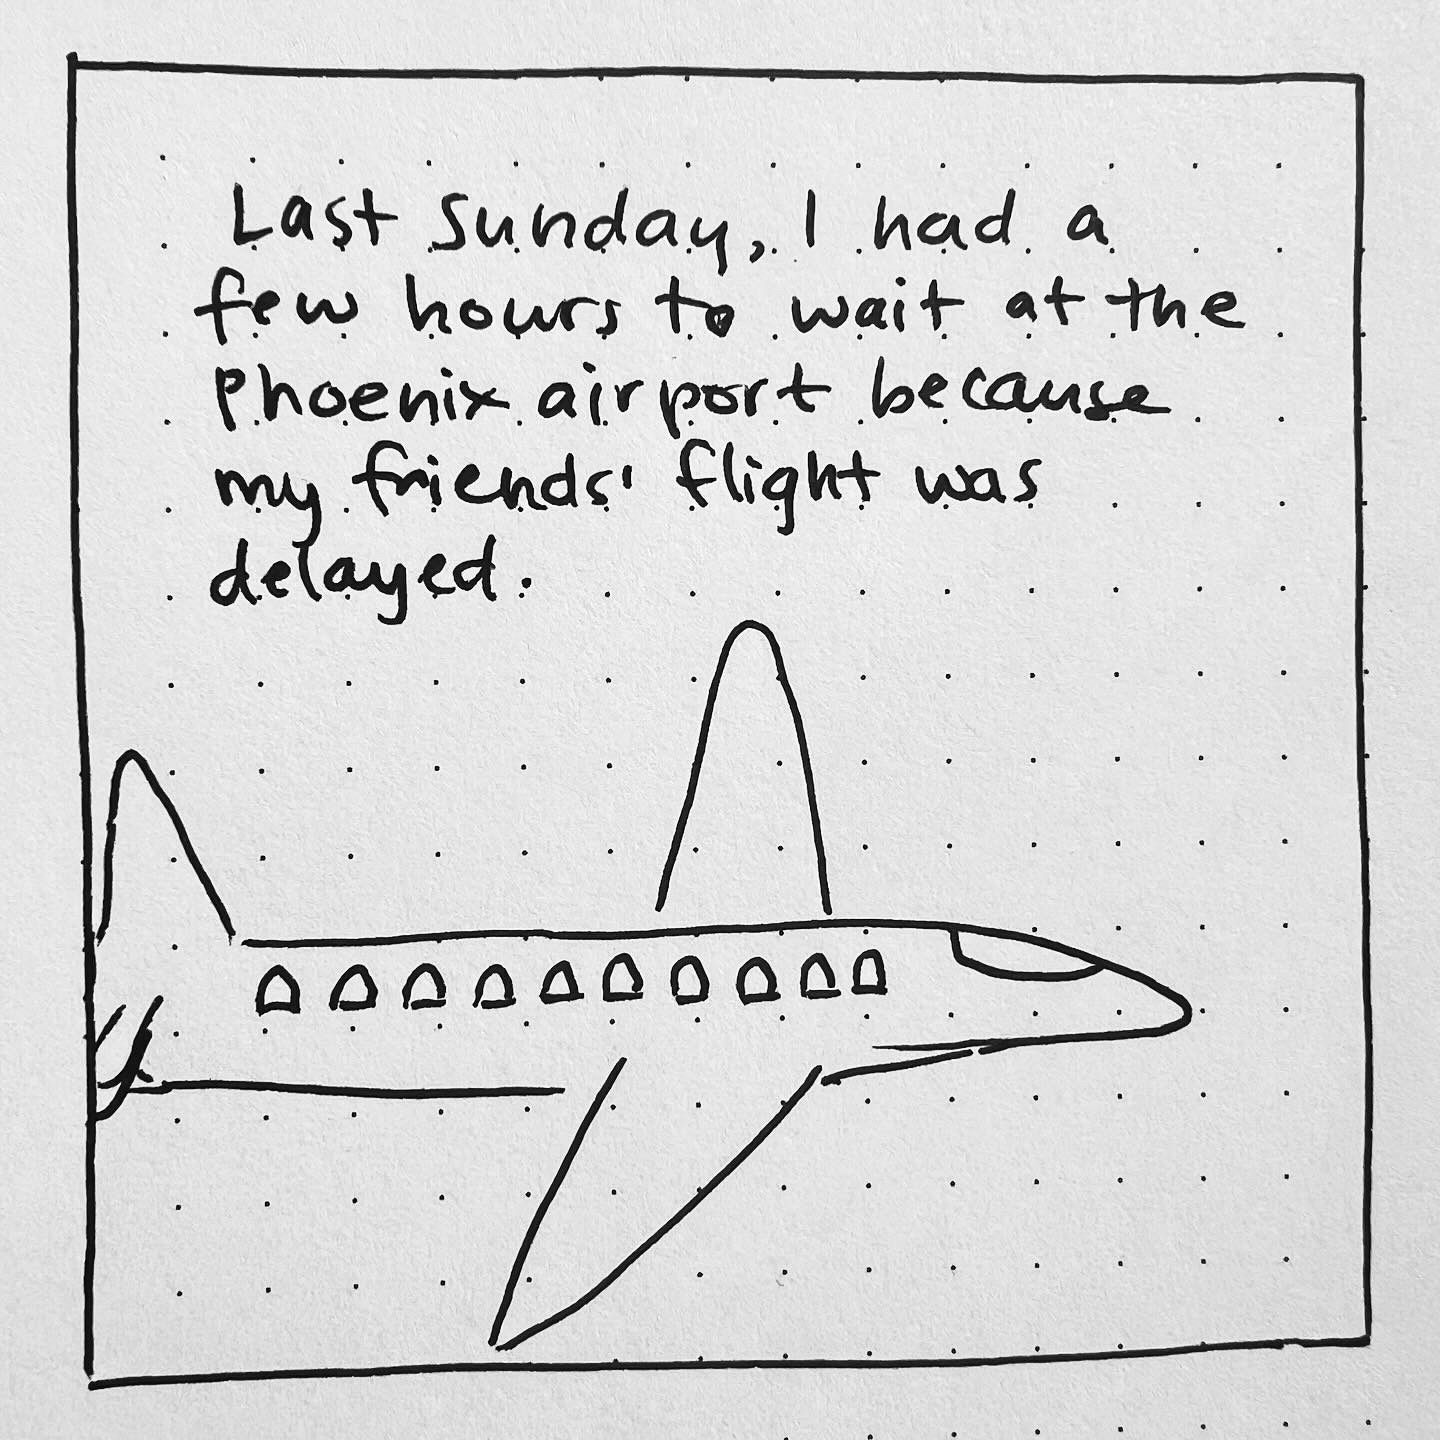 Last Sunday, I had a
few hours to wait at the
Phoenix airport because
my friends' flight was
delayed.